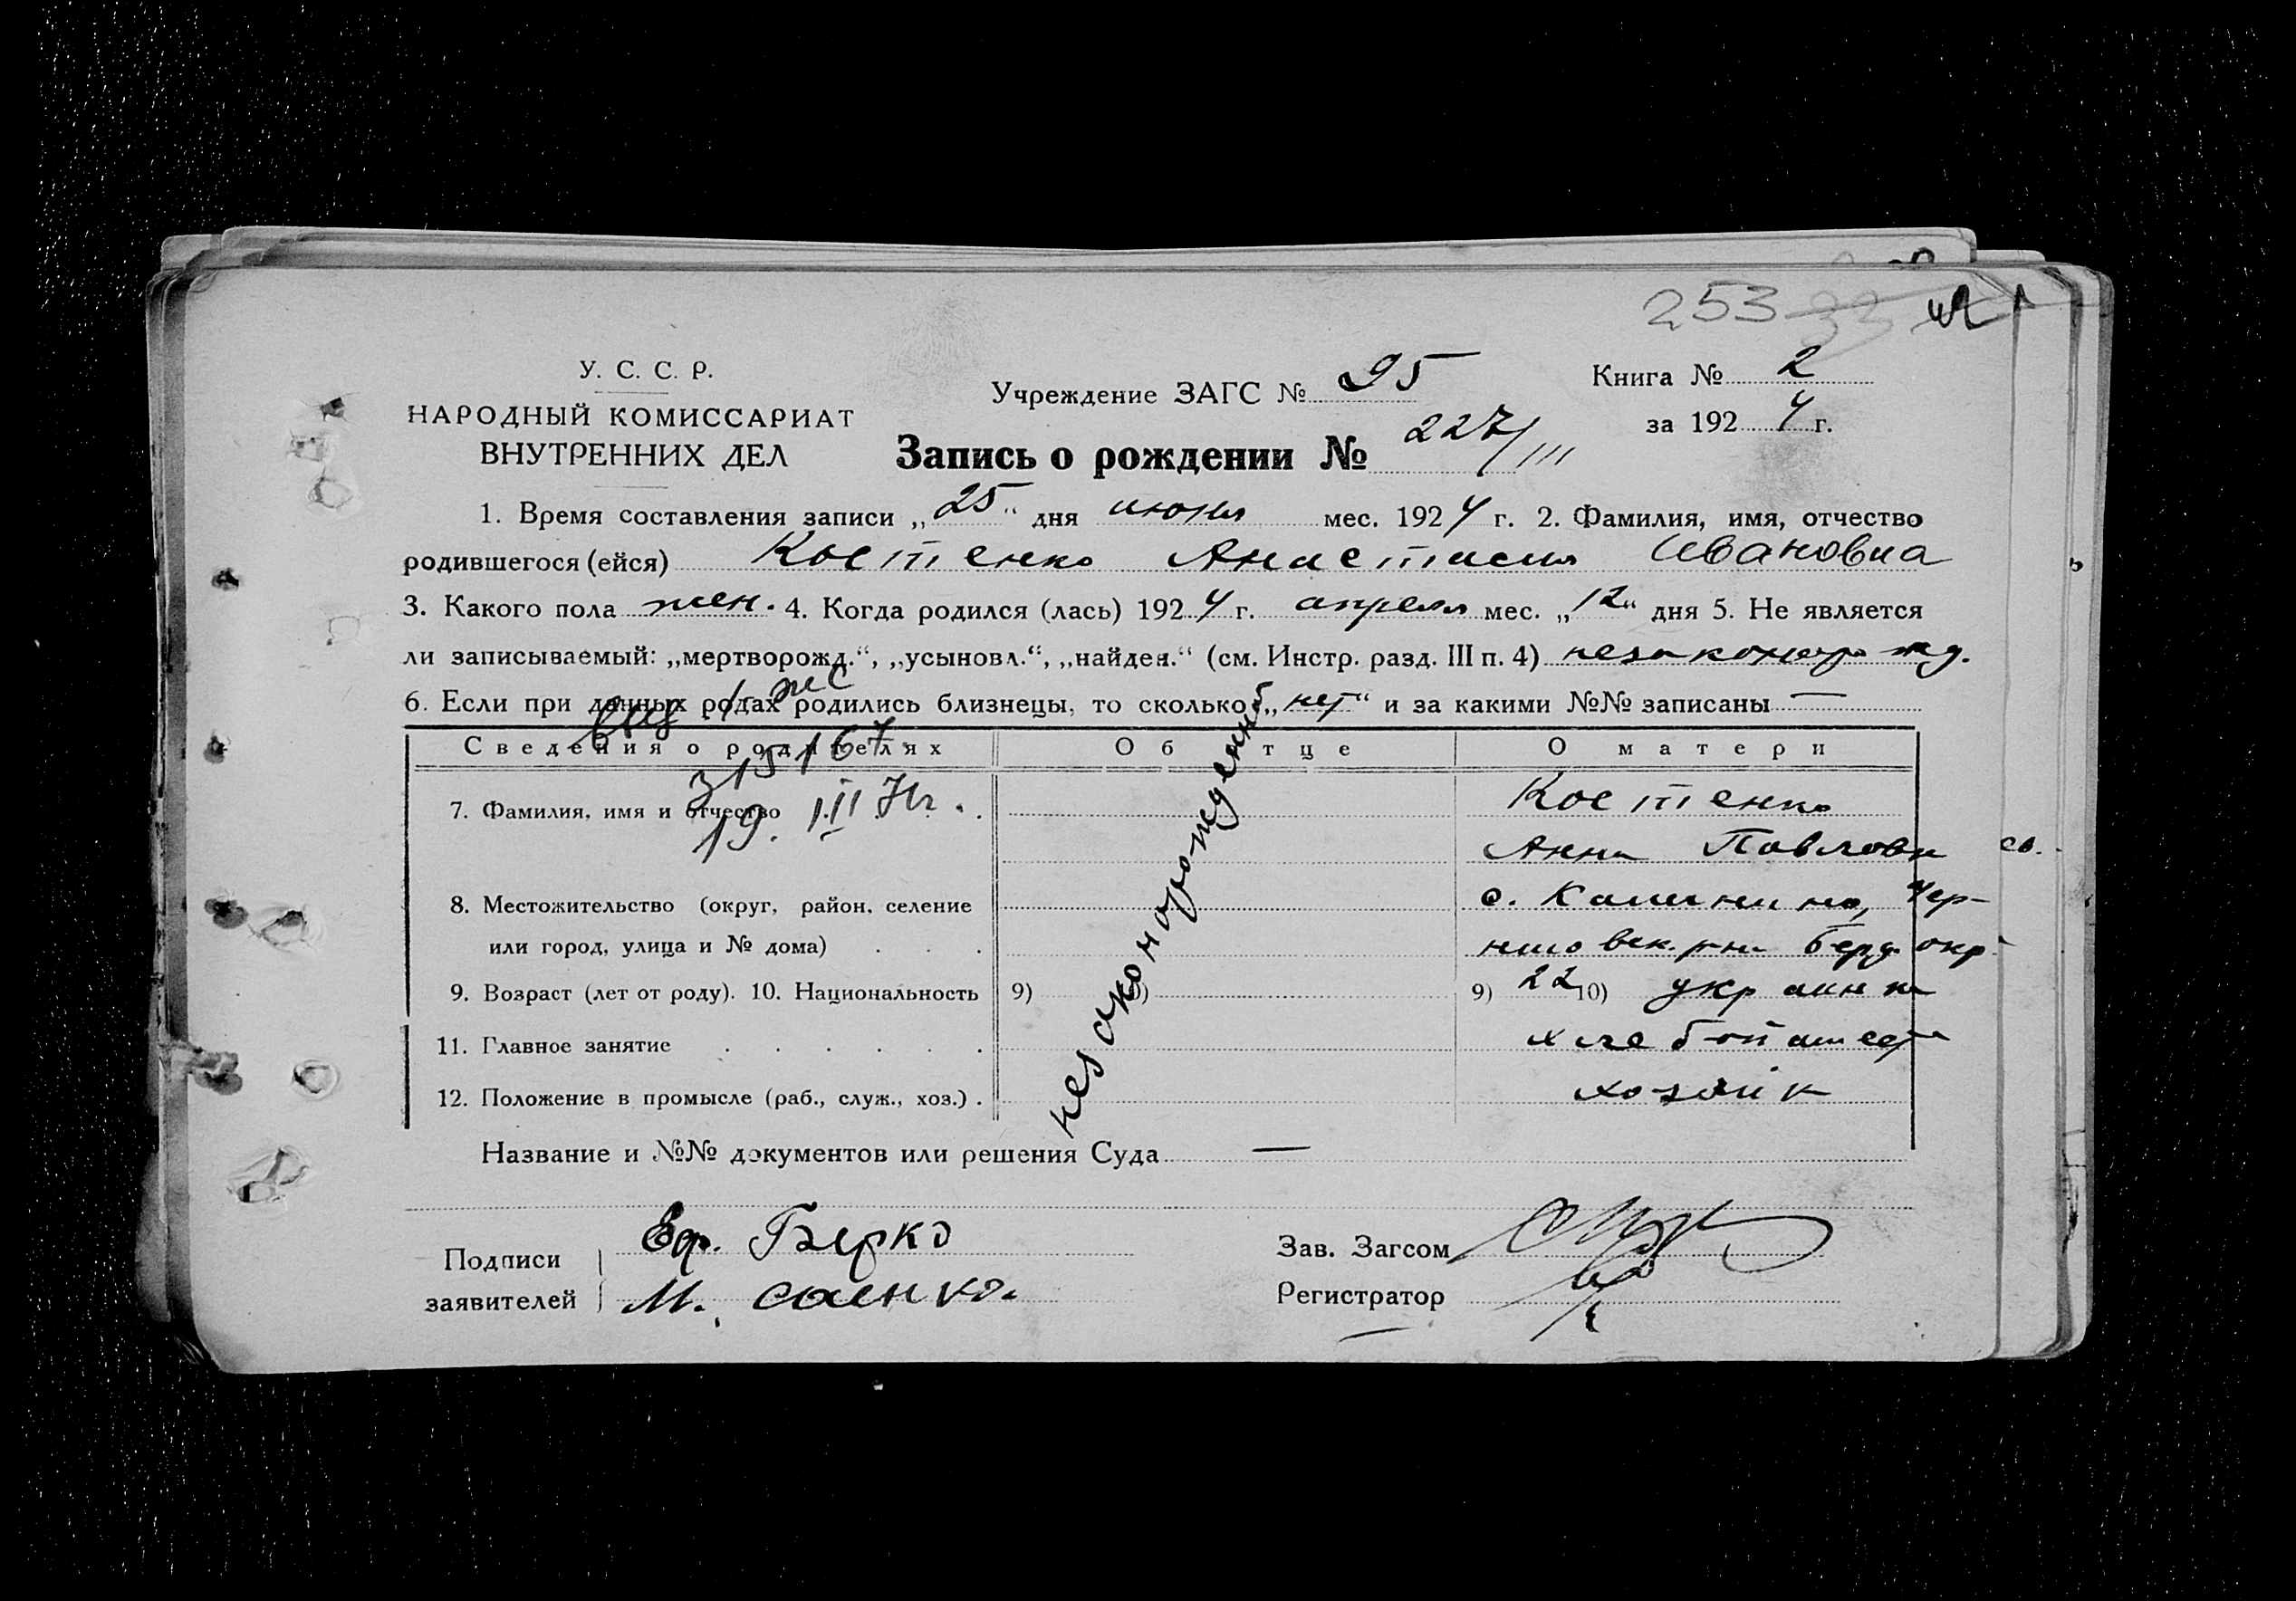 253 33
У. С. С. Р.
НАРОДНЫЙ КОМИССАРИАТ
ВНУТРЕННИХ ДЕЛ
Учреждение ЗАГС № 25
Книга № 2
за 1924 г.
Запись о рождении № 227/III
1. Время составления записи „25“ дня июня мес. 1924 г. 2. Фамилия, имя, отчество
родившегося (ейся) Костенко Анастасия Ивановна
3. Какого пола жен. 4. Когда родился (лась) 1924 г. апреля мес. „12“ дня 5. Не является
ли записываемый: „мертворожд.“, „усыновл.“, „найден.“ (см. Инстр. разд. III п. 4) незаконорожд.
6. Если при данных родах родились близнецы, то сколько „нет“ и за какими №№ записаны —
Сведения о родителях Об отце О матери
7. Фамилия, имя и отчество Костенко
Анна Павловн
8. Местожительство (округ, район, селение с. Калинино, Чер-
или город, улица и № дома) ниговск. р-на Берд. окр.
9. Возраст (лет от роду). 10. Национальность 9) 10) 9) 22 10) украинка
11. Главное занятие хлебопашец
12. Положение в промысле (раб., служ., хоз.) хозяйк
незаконорожденный
19. III
Название и №№ документов или решения Суда —
Подписи
заявителей
Еф. Бирко
М. Саенко.
Зав. Загсом
Регистратор